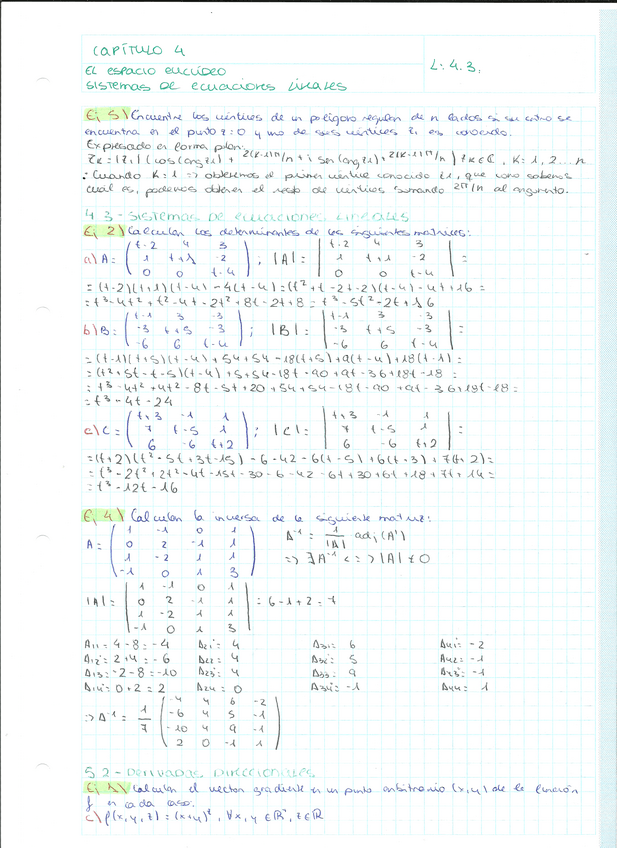 CAPÍTULO 4
L: 4.3.
EL ESPACIO EUCLÍDEO
SISTEMAS DE ECUACIONES LINEALES
Ej 5) Encuentre los vértices de un polígono regular de n lados si su centro se
encuentra en el punto z=0 y uno de sus vértices z₁ es conocido.
Expresado en forma polar:
Zk = |z₁| (cos(arg z₁) + 2(k-1)π/n + i sen(arg z₁) + 2(k-1)π/n) zk∈ℂ, K=1, 2...n
· Cuando K=1 => obtenemos el primer vértice conocido z1, que como sabemos
cual es, podemos obtener el resto de vértices sumando 2π/n al argumento.
4.3 - SISTEMAS DE ECUACIONES LINEALES
Ej 2) Calcular los determinantes de las siguientes matrices:
a) A = ( t-2 4 3 ; |A| = | t-2 4 3
1 t+1 -2 1 t+1 -2
0 0 t-4 ) 0 0 t-4 | =
= (t-2)(t+1)(t-4) - 4(t-4) = (t²+t-2t-2)(t-4) - 4t+16 =
= t³-4t²+t²-4t-2t²+8t-2t+8 = t³-5t²-2t+16
b) B = ( t-1 3 -3 ; |B| = | t-1 3 -3
-3 t+5 -3 -3 t+5 -3
-6 6 t-4 ) -6 6 t-4 | =
= (t-1)(t+5)(t-4) + 54 + 54 - 18(t+5) + 9(t-4) + 18(t-1) =
= (t²+5t-t-5)(t-4) + 5+54-18t-90+9t-36+18t-18 =
= t³-4t²+4t²-8t-5t+20+54+54-18t-90+9t-36+18t-18=
= t³-4t-24
c) C = ( t+3 -1 1 ; |C| = | t+3 -1 1
7 t-5 1 7 t-5 1
6 -6 t+2 ) 6 -6 t+2 | =
= (t+2)(t²-5t+3t-15) - 6-42-6(t-5)+6(t+3)+7(t+2) =
= t³-2t²+2t²-4t-15t-30-6-42-6t+30+6t+18+7t+14 =
= t³-12t-16
Ej 4) Calcular la inversa de la siguiente matriz:
A = ( 1 -1 0 1
0 2 -1 1
1 -2 1 1
-1 0 1 3 )
A⁻¹ = 1/|A| adj(Aᵗ)
=> ∃A⁻¹ <=> |A| ≠ 0
|A| = | 1 -1 0 1
0 2 -1 1
1 -2 1 1
-1 0 1 3 | = 6-1+2 = 7
A11 = 4-8 = -4 A21 = 4 A31 = 6 A41 = -2
A12 = 2+4 = -6 A22 = 4 A32 = 5 A42 = -1
A13 = -2-8 = -10 A23 = 4 A33 = 9 A43 = -1
A14 = 0+2 = 2 A24 = 0 A34 = -1 A44 = 1
=> A⁻¹ = 1/7 ( -4 4 6 -2
-6 4 5 -1
-10 4 9 -1
2 0 -1 1 )
5.2 - DERIVADAS DIRECCIONALES
Ej 1) Calcular el vector gradiente en un punto arbitrario (x,y) de la función
f en cada caso.
c) f(x,y,z) = (x+y)ᶻ, ∀x,y ∈ℝ⁺, z∈ℝ